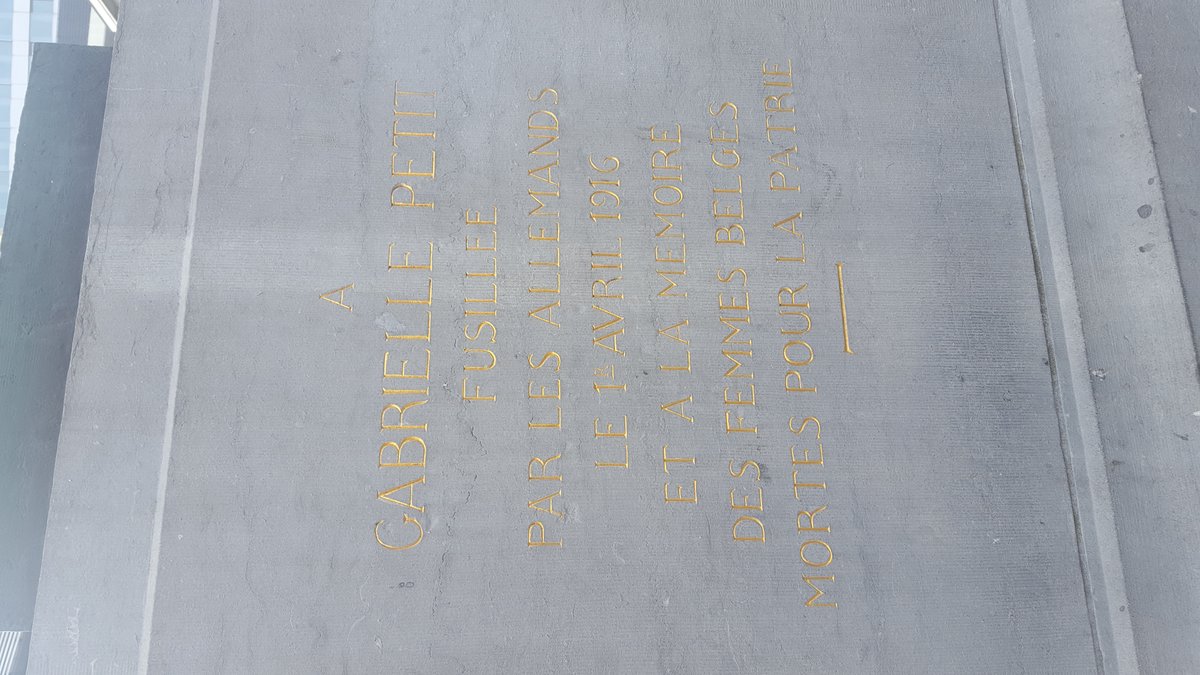 A
GABRIELLE PETIT
FUSILLEE
PAR LES ALLEMANDS
LE 1ER AVRIL 1916
ET A LA MEMOIRE
DES FEMMES BELGES
MORTES POUR LA PATRIE